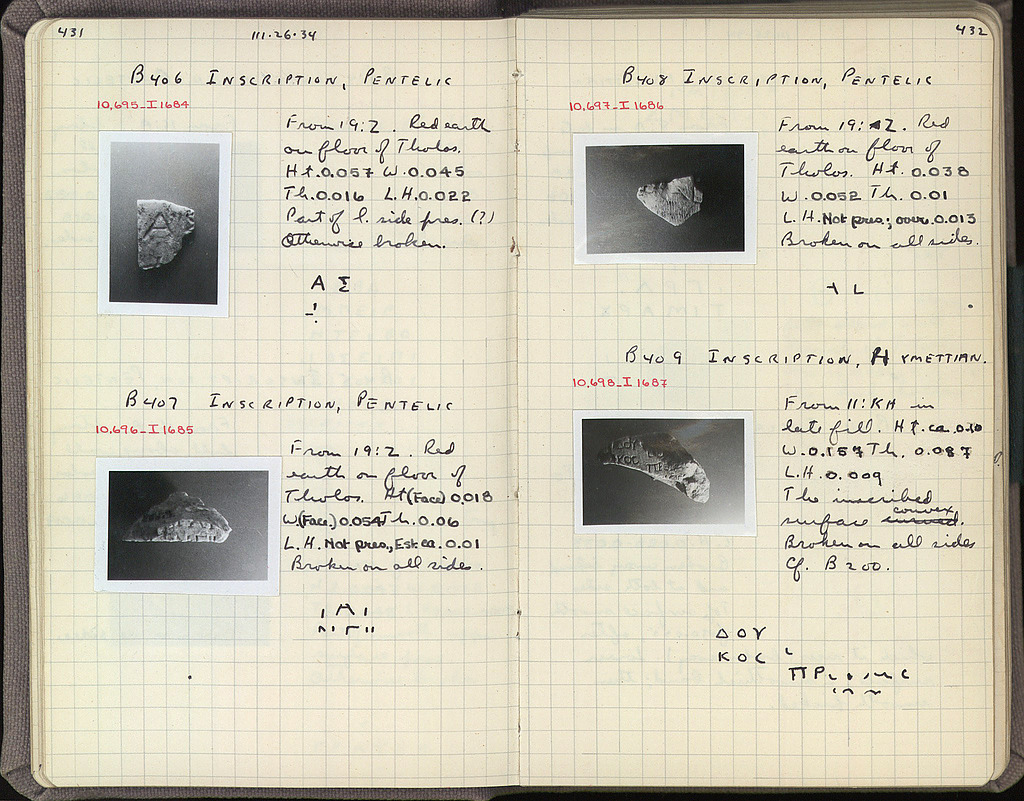 431
111·26·34
B406 INSCRIPTION, PENTELIC
10,695-I 1684
From 19:Z. Red earth
on floor of Tholos.
Ht. 0.057 W. 0.045
Th. 0.016 L.H. 0.022
Part of l. side pres. (?)
Otherwise broken.
Α Σ
B407 INSCRIPTION, PENTELIC
10,696-I 1685
From 19:Z. Red
earth on floor of
Tholos. Ht (Face) 0.018
W. (Face.) 0.054 Th. 0.06
L.H. Not pres., Est. ca. 0.01
Broken on all sides.
432
B408 INSCRIPTION, PENTELIC
10,697-I 1686
From 19:Z. Red
earth on floor of
Tholos. Ht. 0.038
W. 0.052 Th. 0.01
L.H. Not pres; over 0.013
Broken on all sides.
B409 INSCRIPTION, HYMETTIAN.
10,698-I 1687
From 11:KH in
late fill. Ht. ca. 0.10
W. 0.157 Th. 0.087
L.H. 0.009
The inscribed
convex
surface curved.
Broken on all sides
Cf. B 200.
Δ Ο Υ
Κ Ο C